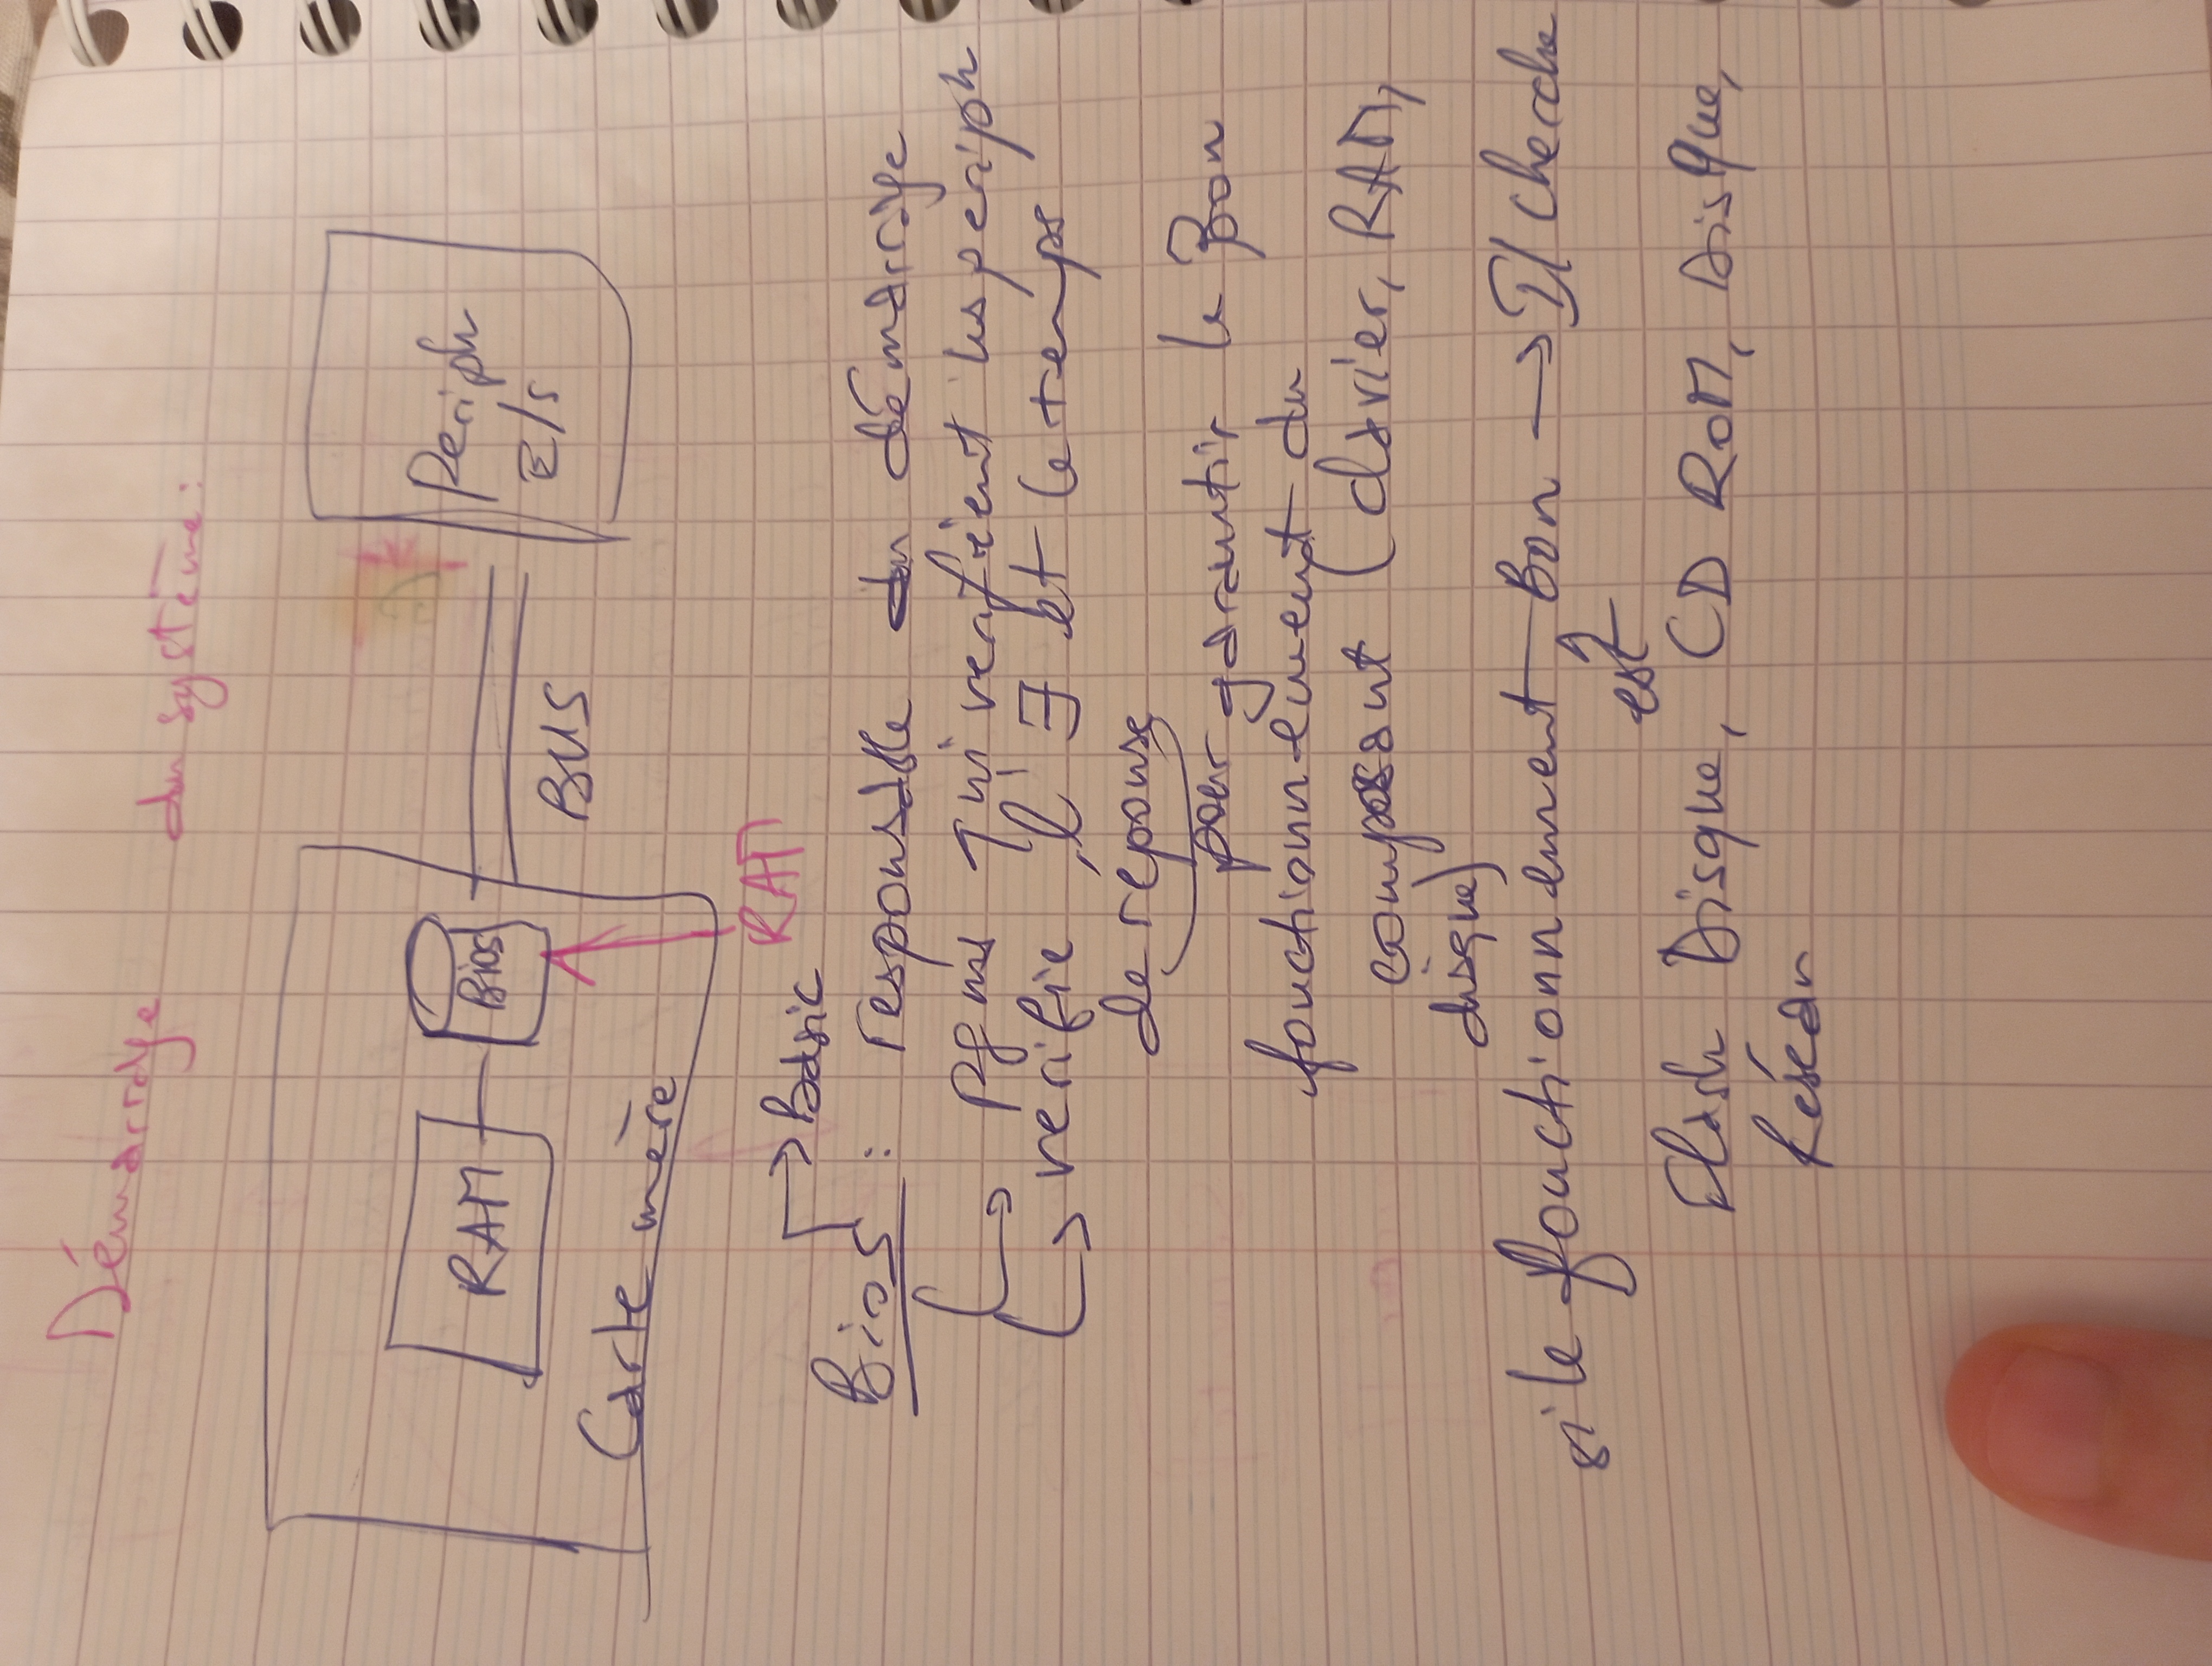 Démarrage du système :
RAM
Bios
Periph
E/s
BUS
Carte mère
RAM
basic
Bios : responsable du démarrage
Pgms qui verifient les periph
verifie l'∃ et le temps
de reponse
pour garantir le Bon
fonctionnement du
composant (clavier, RAM,
disque)
si le fonctionnement bon → Il cherche
est
Flash Disque, CD ROM, Disque,
Reséau